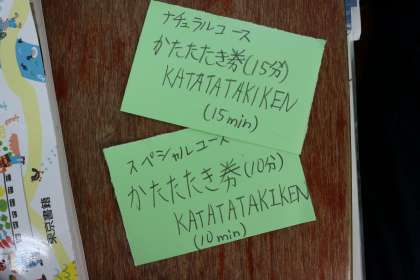 ナチュラルコース
かたたたき券(15分)
KATATATAKIKEN
(15min)
スペシャルコース
かたたたき券(10分)
KATATATAKIKEN
(10min)
東京書籍